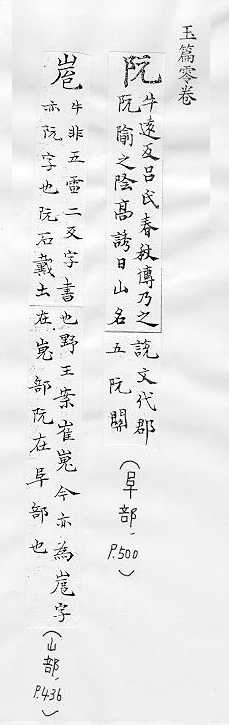 玉篇零卷
阮
牛遠反呂氏春秋博乃之說文代郡
阮隃之陰高誘曰山名五阮關
(阜部, P.500)
峞
牛非五雷二反字書也野王案崔嵬今亦為峞字
亦阮字也阮石戴土在嵬部阮在阜部也
(山部, P.436)